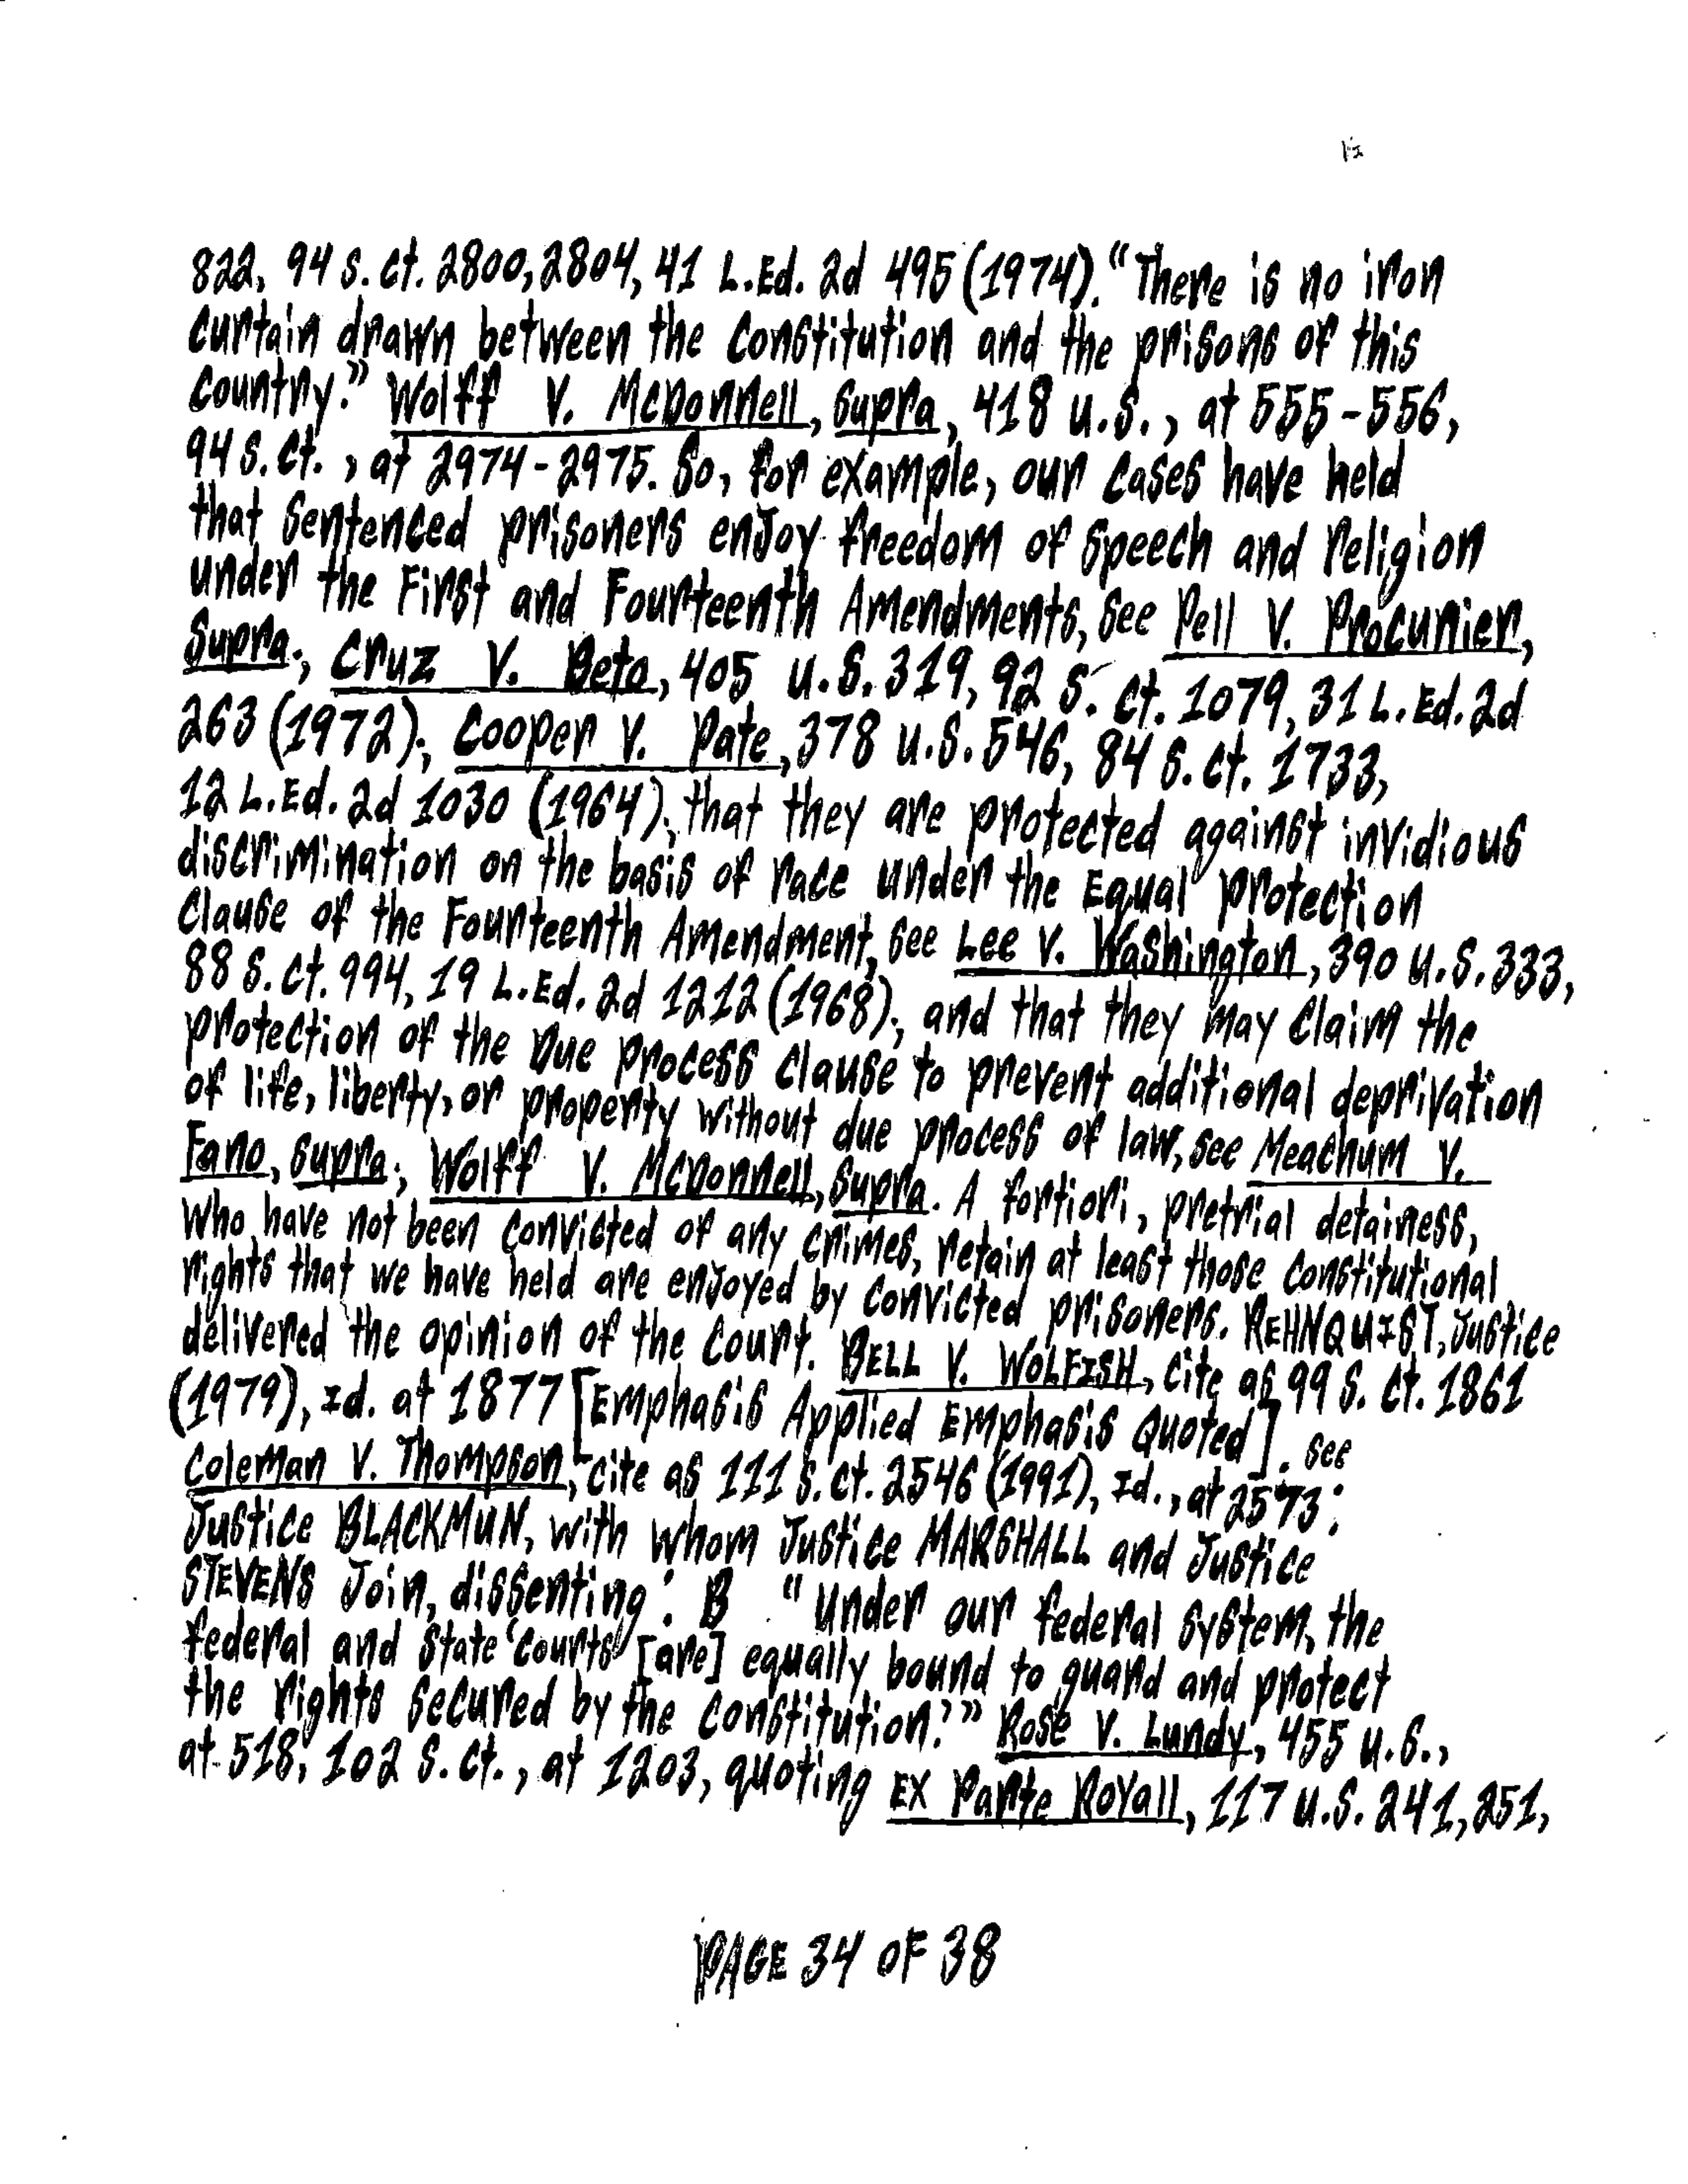 822, 94 S. Ct. 2800, 2804, 41 L.Ed. 2d 495 (1974). "There is no iron
curtain drawn between the Constitution and the prisons of this
country." Wolff V. McDonnell, Supra, 418 U.S., at 555-556,
94 S. Ct., at 2974-2975. So, for example, our cases have held
that Sentenced prisoners enjoy freedom of Speech and religion
under the First and Fourteenth Amendments, See Pell V. Procunier,
Supra.; Cruz V. Beto, 405 U.S. 319, 92 S. Ct. 1079, 31 L. Ed. 2d
263 (1972); Cooper V. Pate, 378 U.S. 546, 84 S. Ct. 1733,
12 L.Ed. 2d 1030 (1964); that they are protected against invidious
discrimination on the basis of race under the Equal protection
Clause of the Fourteenth Amendment, See Lee V. Washington, 390 U.S. 333,
88 S. Ct. 994, 19 L.Ed. 2d 1212 (1968); and that they may Claim the
protection of the Due process Clause to prevent additional deprivation
of life, liberty, or property without due process of law, see Meachum V.
Fano, Supra; Wolff V. McDonnell, Supra. A fortiori, pretrial detainess,
Who have not been Convicted of any crimes, retain at least those Constitutional
rights that we have held are enjoyed by convicted prisoners. REHNQUIST, Justice
delivered the opinion of the Court. BELL V. WOLFISH, Cite as 99 S. Ct. 1861
(1979), Id. at 1877 [Emphasis Applied Emphasis Quoted]. See
Coleman V. Thompson, Cite as 111 S. Ct. 2546 (1991), Id., at 2573:
Justice BLACKMUN, with whom Justice MARSHALL and Justice
STEVENS Join, dissenting: B "Under our federal System, the
federal and State 'Courts' [are] equally bound to guard and protect
the rights Secured by the Constitution.'" Rose V. Lundy, 455 U.S.,
at 518, 102 S. Ct., at 1203, quoting EX Parte Royall, 117 U.S. 241, 251,
PAGE 34 OF 38